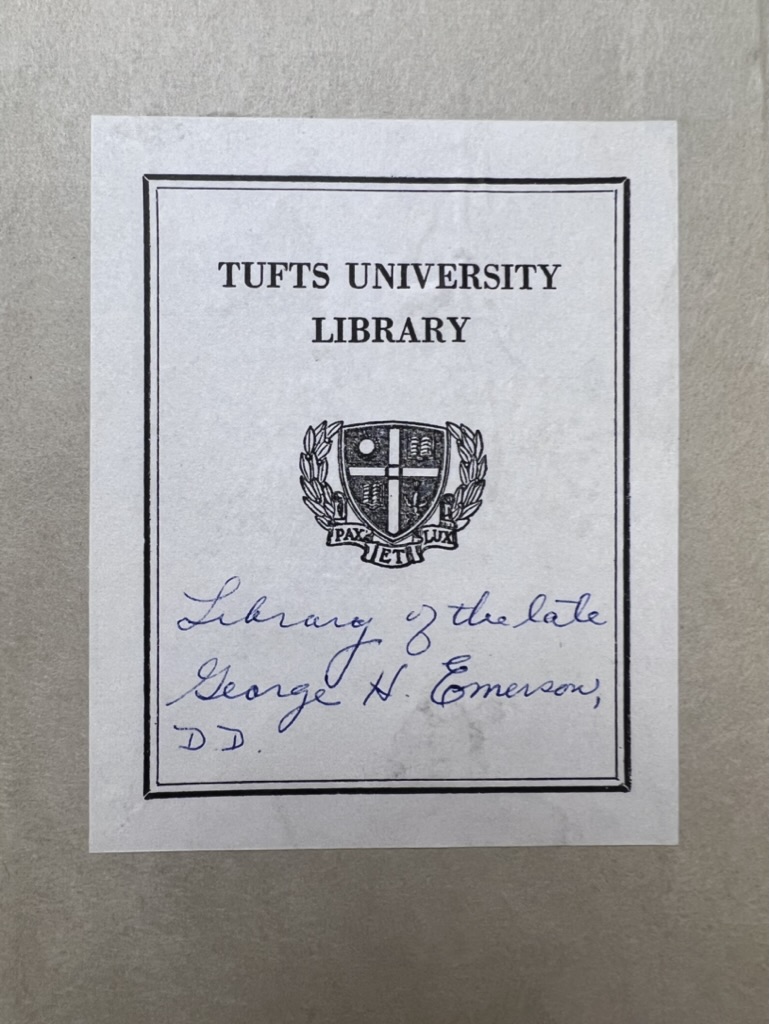 TUFTS UNIVERSITY
LIBRARY
PAX ET LUX
Library of the late
George H. Emerson,
D D.